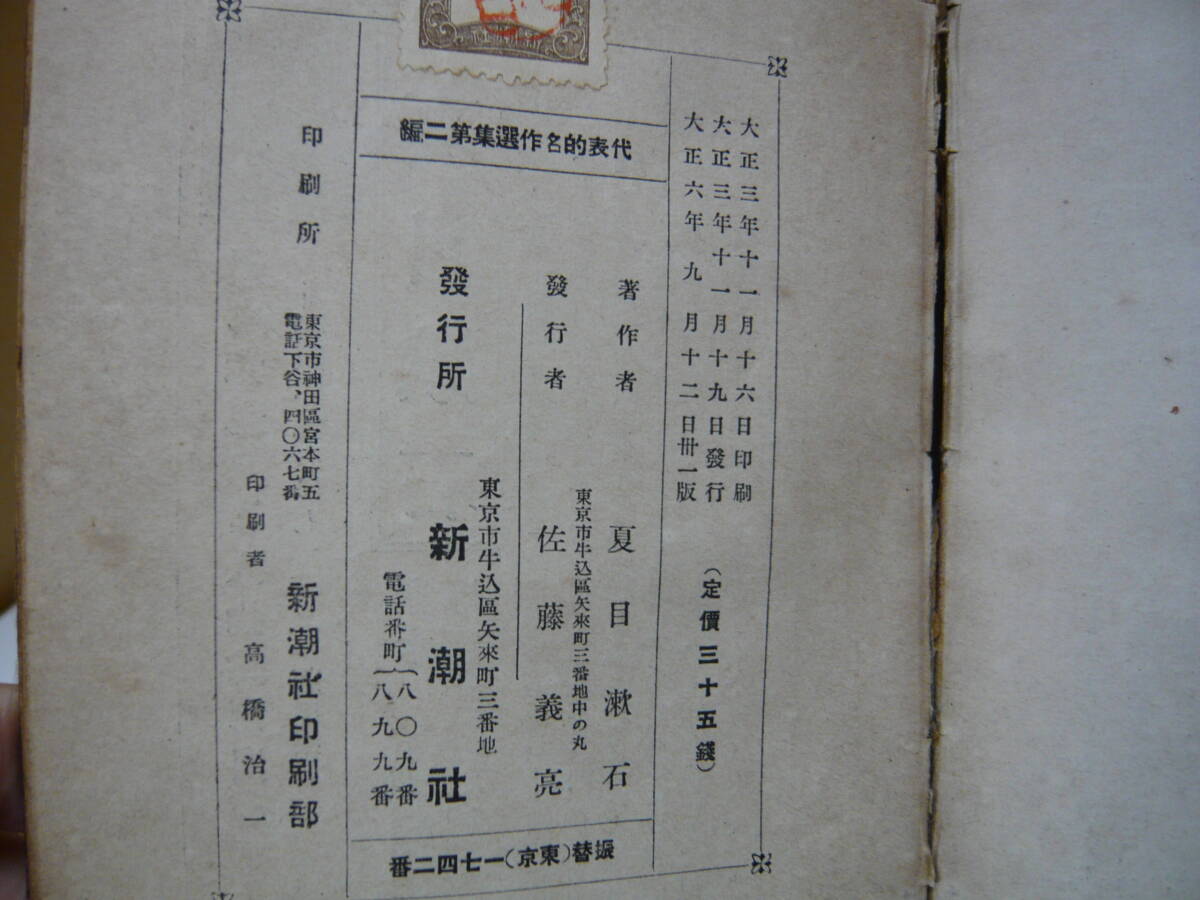 大正三年十一月十六日印刷
大正三年十一月十九日發行
大正六年九月十二日卅一版
（定價三十五錢）
代表的名作選集第二編
著作者 夏目漱石
東京市牛込區矢來町三番地中の丸
發行者 佐藤義亮
東京市牛込區矢來町三番地
發行所 新潮社
電話番町｛八〇九番
八九九番
振替（東京）一七四二番
東京市神田區宮本町五
電話下谷、四〇六七番
印刷所 新潮社印刷部
印刷者 高橋治一